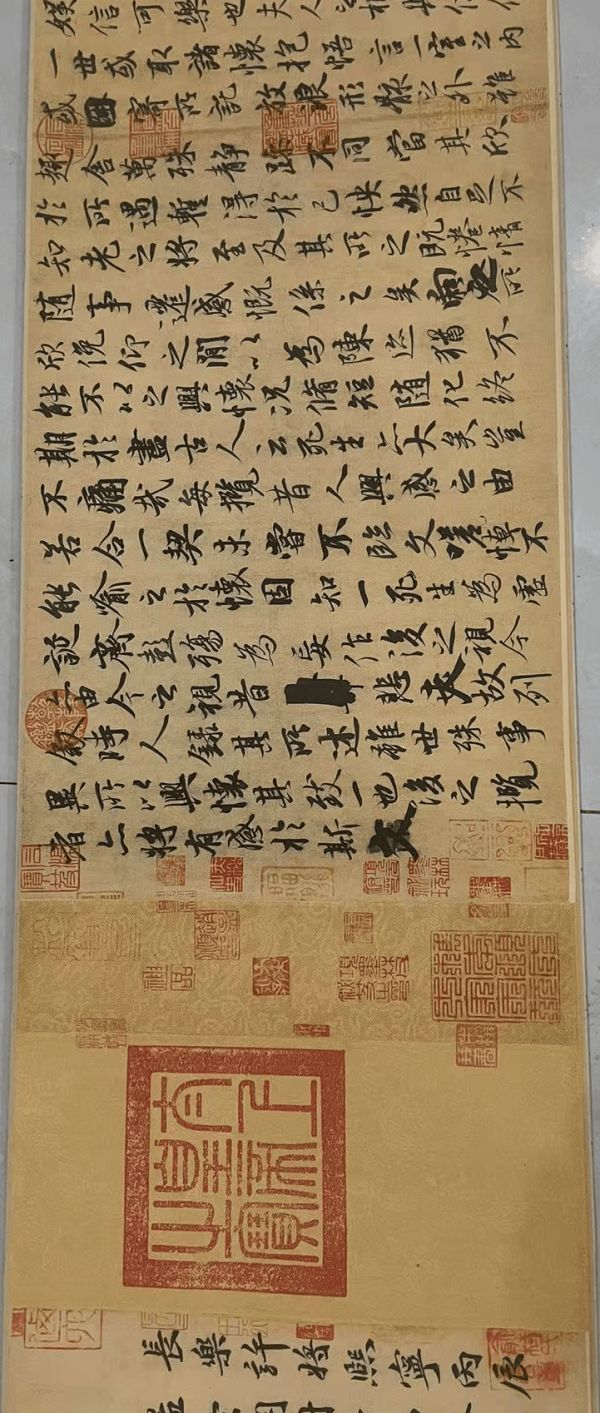 娱信可樂也夫人之相與
一世或取諸懷抱悟言一室之内
或因寄所託放浪形骸之外雖
趣舍萬殊靜躁不同當其欣
於所遇暫得於己怏然自足不
知老之將至及其所之既惓情
隨事遷感慨係之矣向之所
欣俛仰之閒以為陳迹猶不
能不以之興懷況脩短隨化終
期於盡古人云死生亦大矣豈
不痛哉每攬昔人興感之由
若合一契未嘗不臨文嗟悼不
能喻之於懷固知一死生為虛
誕齊彭殤為妄作後之視今
亦由今之視昔悲夫故列
敘時人錄其所述雖世殊事
異所以興懷其致一也後之攬
者亦將有感於斯文
太上皇帝之寶
長樂許將熙寧丙辰